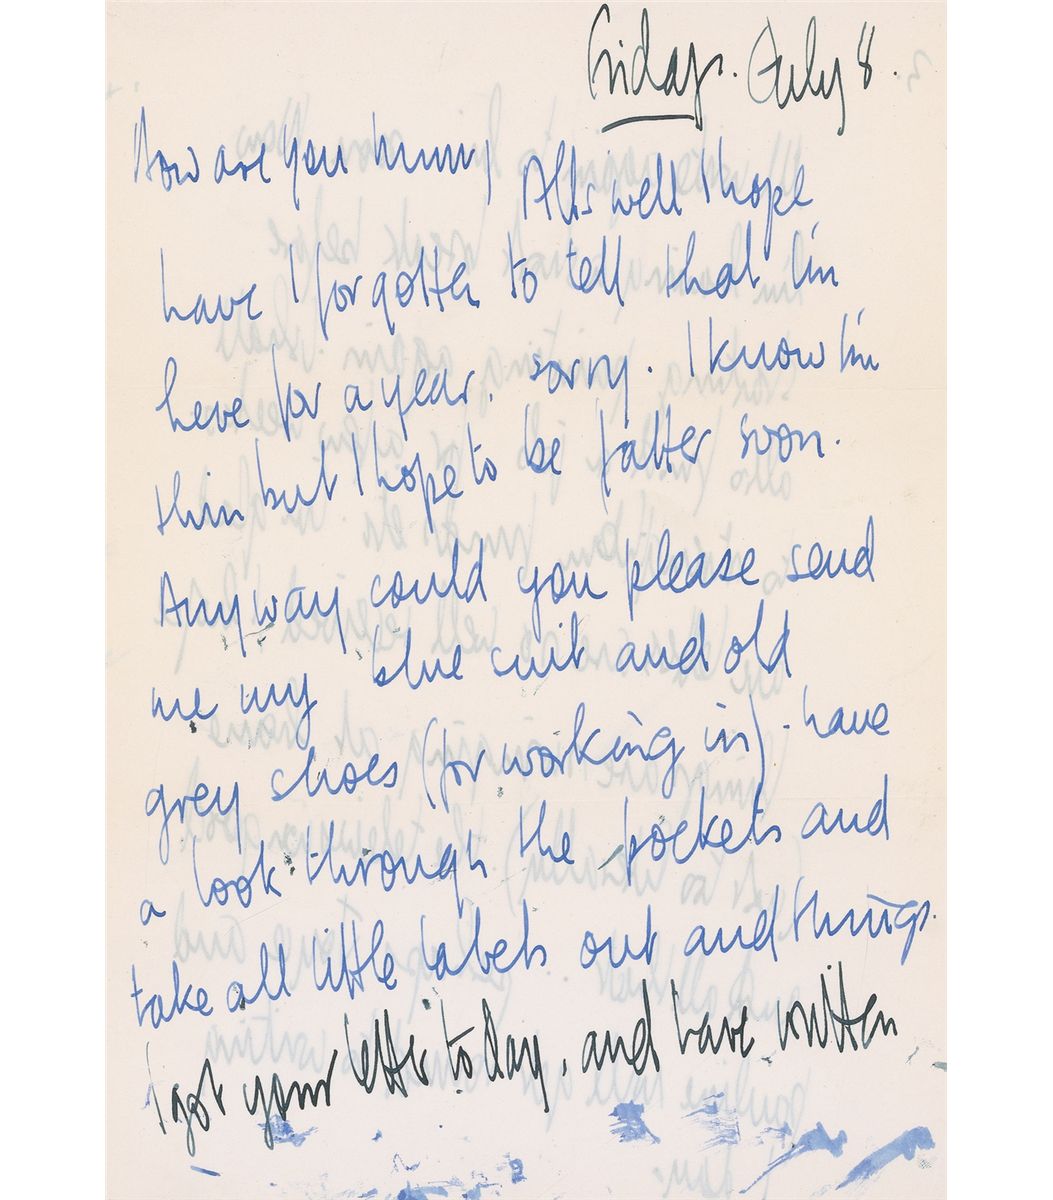 Friday. July 8.
How are you hunny All's well I hope
have I forgotten to tell that I'm
here for a year. sorry. I know I'm
thin but I hope to be fatter soon.
Anyway could you please send
me my blue suit and old
grey shoes (for working in). have
a look through the pockets and
take all little labels out and things.
I got your letter today, and have written